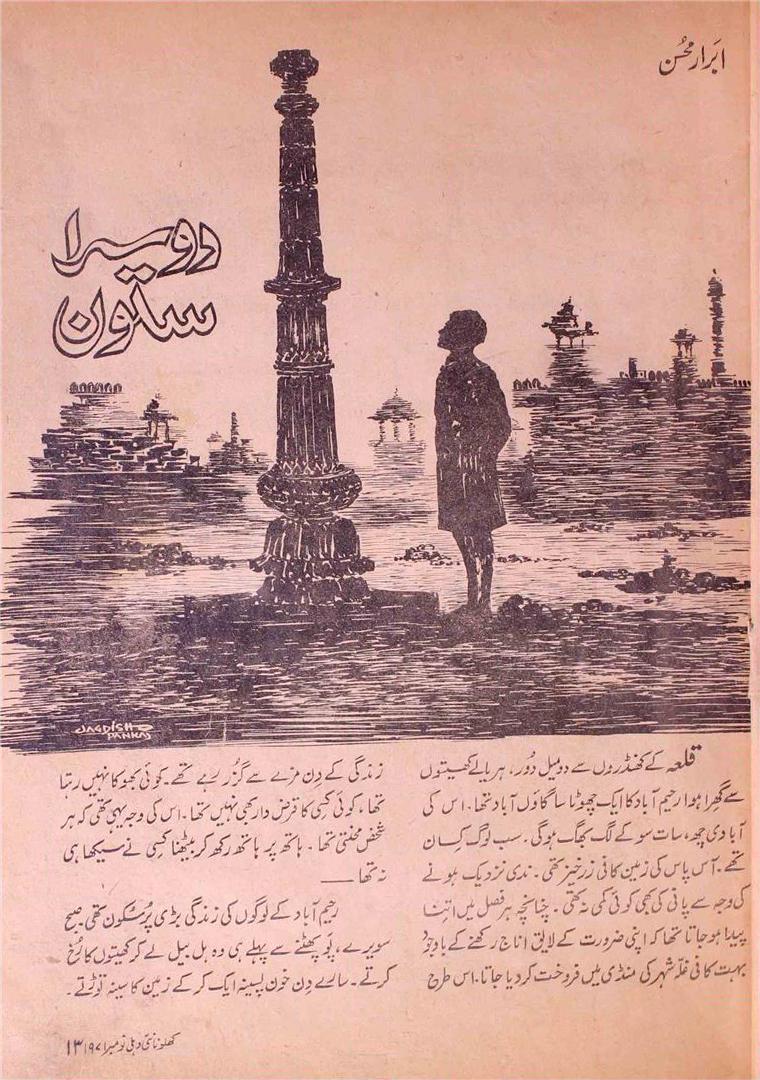 ابرار محسن
دوسرا
ستون
JAGDISH
PANKAJ
قلعہ کے کھنڈروں سے دو میل دُور، ہریالے کھیتوں
سے گھرا ہوا رحیم آباد کا ایک چھوٹا سا گاؤں آباد تھا۔ اس کی
آبادی چھ، سات سو کے لگ بھگ ہوگی۔ سب لوگ کسان
تھے۔ آس پاس کی زمین کافی زرخیز تھی۔ ندی نزدیک ہونے
کی وجہ سے پانی کی بھی کوئی کمی نہ تھی۔ چنانچہ ہر فصل میں اتنا
پیدا ہو جاتا تھا کہ اپنی ضرورت کے لایق اناج رکھنے کے باوجود
بہت کافی غلّہ شہر کی منڈی میں فروخت کر دیا جاتا۔ اس طرح
زندگی کے دِن مزے سے گزر رہے تھے۔ کوئی بھوکا نہیں رہتا
تھا، کوئی کسی کا قرض دار بھی نہیں تھا۔ اس کی وجہ یہی تھی کہ ہر
شخص محنتی تھا۔ ہاتھ پر ہاتھ رکھ کر بیٹھنا کسی نے سیکھا ہی
نہ تھا ——
رحیم آباد کے لوگوں کی زندگی بڑی پُرسکون تھی صبح
سویرے، پَو پھٹنے سے پہلے ہی وہ ہل بیل لے کر کھیتوں کا رُخ
کرتے۔ سارے دِن خون پسینہ ایک کر کے زمین کا سینہ توڑتے۔
کھلونا نئی دہلی نومبر ۱۹۷۱ ۱۳